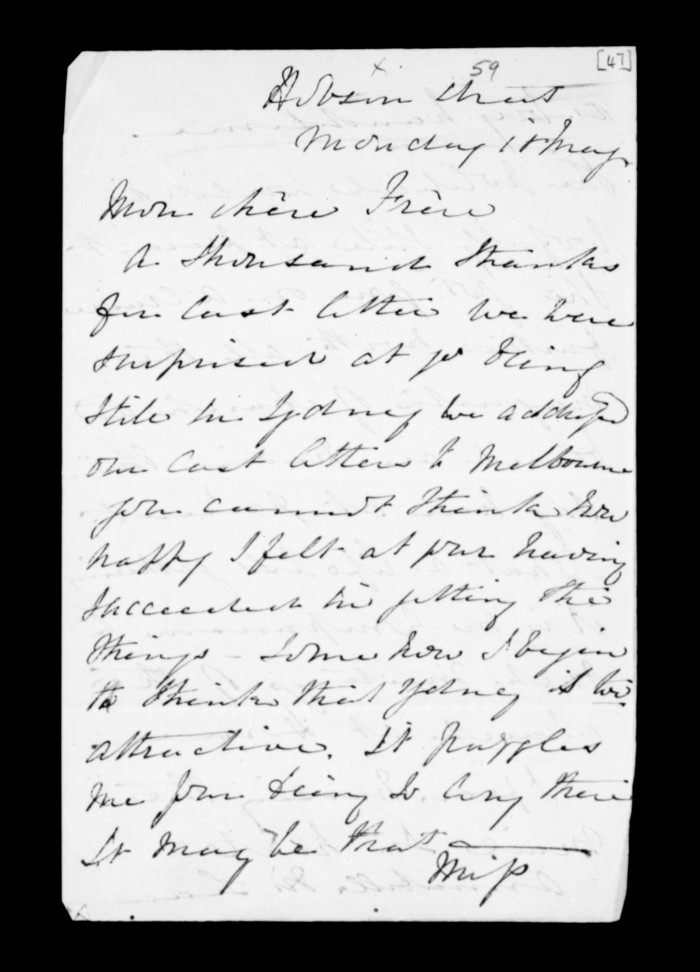 [47]
x 59
Hobson Street
Monday 1st May
Mon chère Frère
A thousand thanks
for last letter we were
surprised at yr being
still in Sydney we addressed
our last letters to Melbourne
you cannot think how
happy I felt at your having
succeeded in getting the
things - some how I begin
to think that Sydney is too
attractive. It puzzles
me your being so long there
It may be that ———
Miss